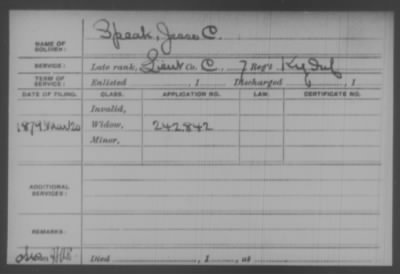 Speak, Jesse C.
NAME OF SOLDIER:
SERVICE: Late rank, Lieut Co. C, 7 Reg't Ky Inf
TERM OF SERVICE: Enlisted , 1 Discharged , 1
DATE OF FILING. CLASS. APPLICATION NO. LAW. CERTIFICATE NO.
Invalid,
1879 Mar 20 Widow, 242,842
Minor,
ADDITIONAL SERVICES:
REMARKS:
Died , 1 , at